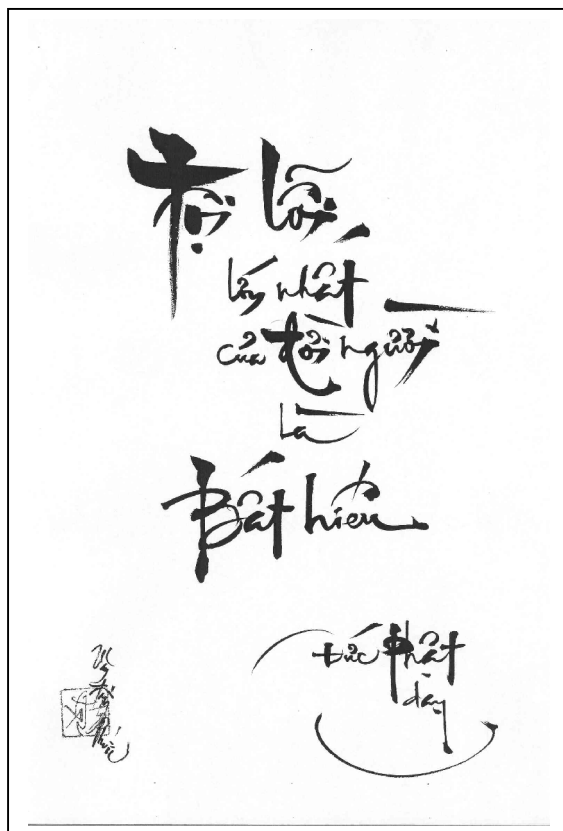 Tội lỗi
lớn nhất
của đời người
là
Bất hiếu
Đức Phật
dạy